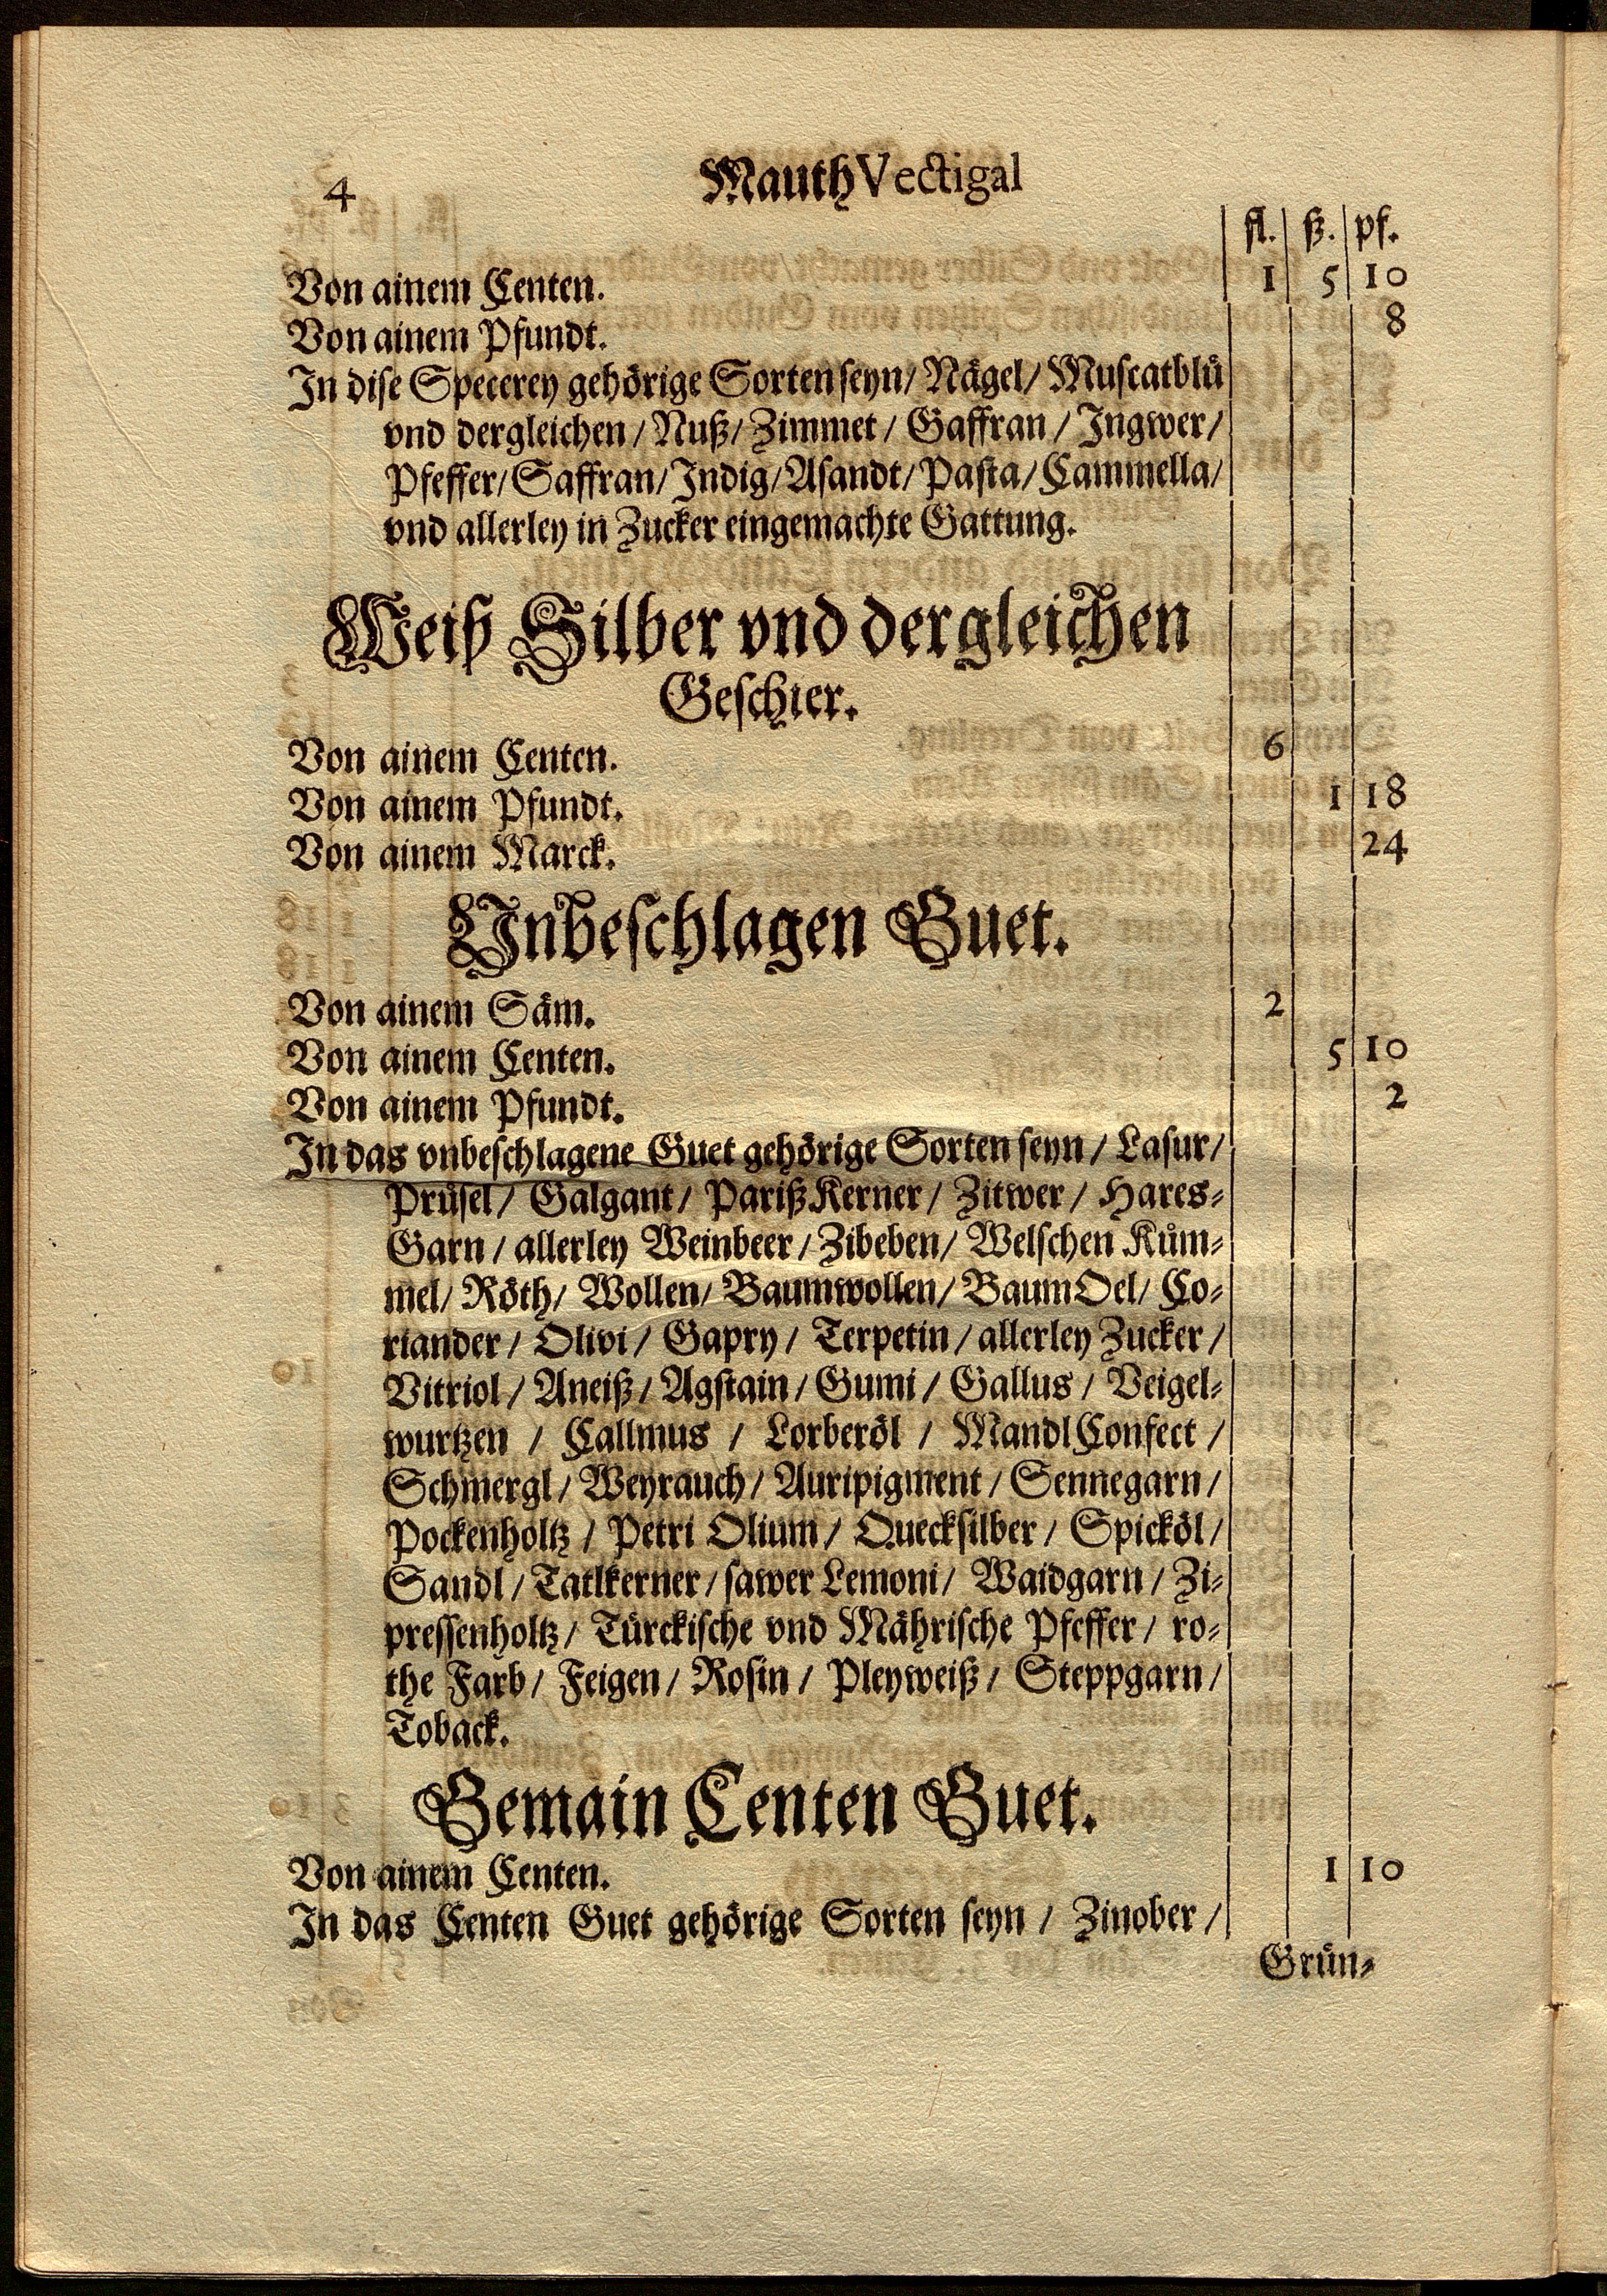 4 Mauth Vectigal
fl. ß. pf.
Von ainem Centen. 1 5 10
Von ainem Pfundt. 8
In dise Specerey gehörige Sorten seyn/ Nägel/ Muscatblü
vnd dergleichen/ Nuß/ Zimmet/ Gaffran/ Ingwer/
Pfeffer/ Saffran/ Indig/ Asandt/ Pasta/ Cammella/
vnd allerley in Zucker eingemachte Gattung.
Weiß Silber vnd dergleichen
Geschier.
Von ainem Centen. 6
Von ainem Pfundt. 1 18
Von ainem Marck. 24
Unbeschlagen Guet.
Von ainem Säm. 2
Von ainem Centen. 5 10
Von ainem Pfundt. 2
In das vnbeschlagene Guet gehörige Sorten seyn/ Lasur/
Prüsel/ Galgant/ Pariß Kerner/ Zitwer/ Hares-
Garn/ allerley Weinbeer/ Zibeben/ Welschen Küm-
mel/ Röth/ Wollen/ Baumwollen/ BaumOel/ Co-
riander/ Olivi/ Gapry/ Terpetin/ allerley Zucker/
Vitriol/ Aneiß/ Agstain/ Gumi/ Gallus/ Veigel-
wurtzen/ Callmus/ Lorberöl/ MandlConfect/
Schmergl/ Weyrauch/ Auripigment/ Sennegarn/
Pockenholtz/ Petri Olium/ Quecksilber/ Spicköl/
Sandl/ Tatlkerner/ sawer Lemoni/ Waidgarn/ Zi-
pressenholtz/ Türckische vnd Mährische Pfeffer/ ro-
the Farb/ Feigen/ Rosin/ Pleyweiß/ Steppgarn/
Toback.
Gemain Centen Guet.
Von ainem Centen. 1 10
In das Centen Guet gehörige Sorten seyn/ Zinober/
Grün-